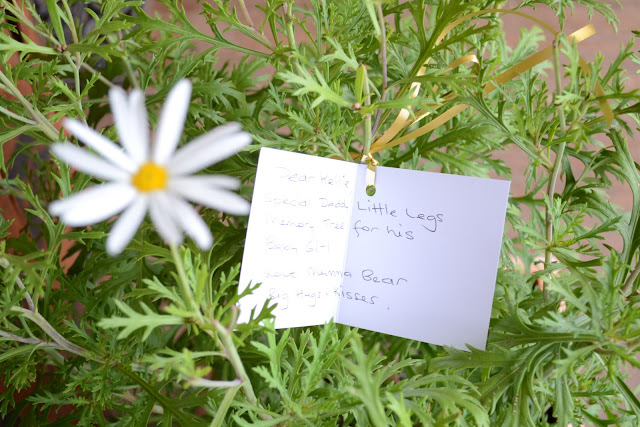 Dear Kellie
Special Daddy Little Legs
Memory Tree for his
Baby Girl
Love Nanna Bear
Big Hugs & Kisses.